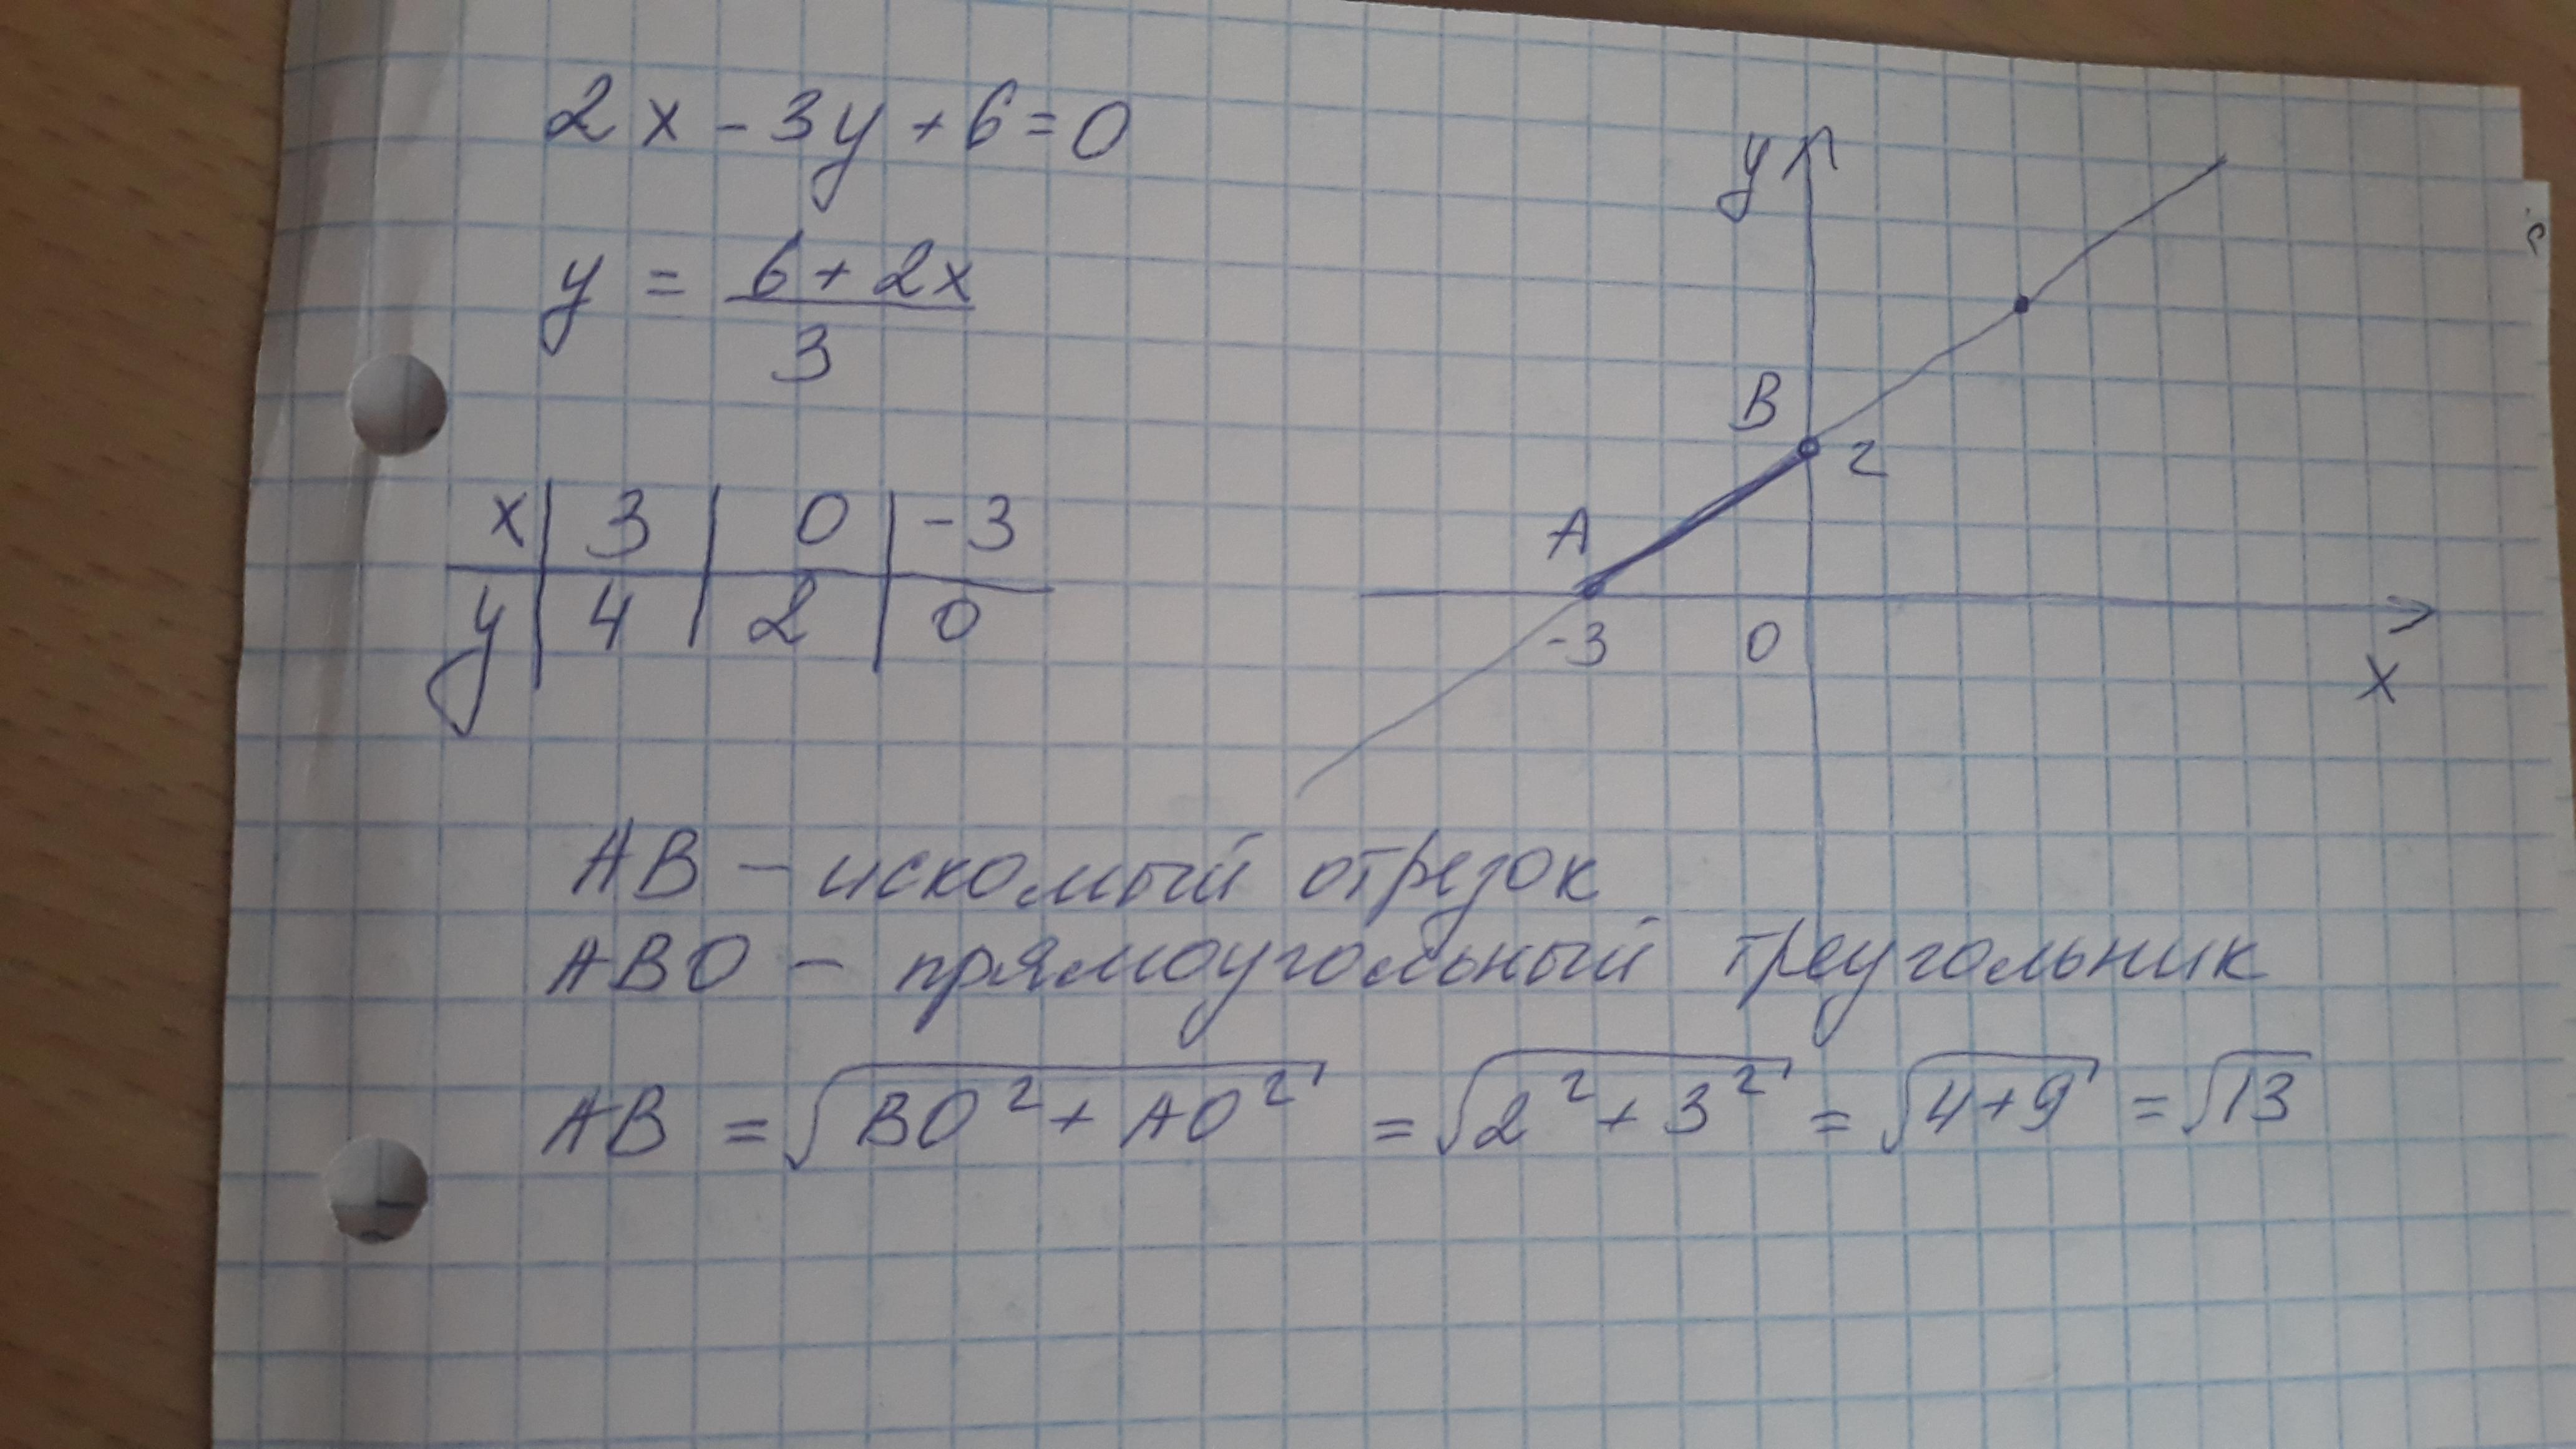 2x - 3y + 6 = 0
y = (6 + 2x)/3
x | 3 | 0 | -3
y | 4 | 2 | 0
y
B
2
A
-3 0
x
AB – искомый отрезок
ABO – прямоугольный треугольник
AB = √(BO² + AO²) = √(2² + 3²) = √(4+9) = √13